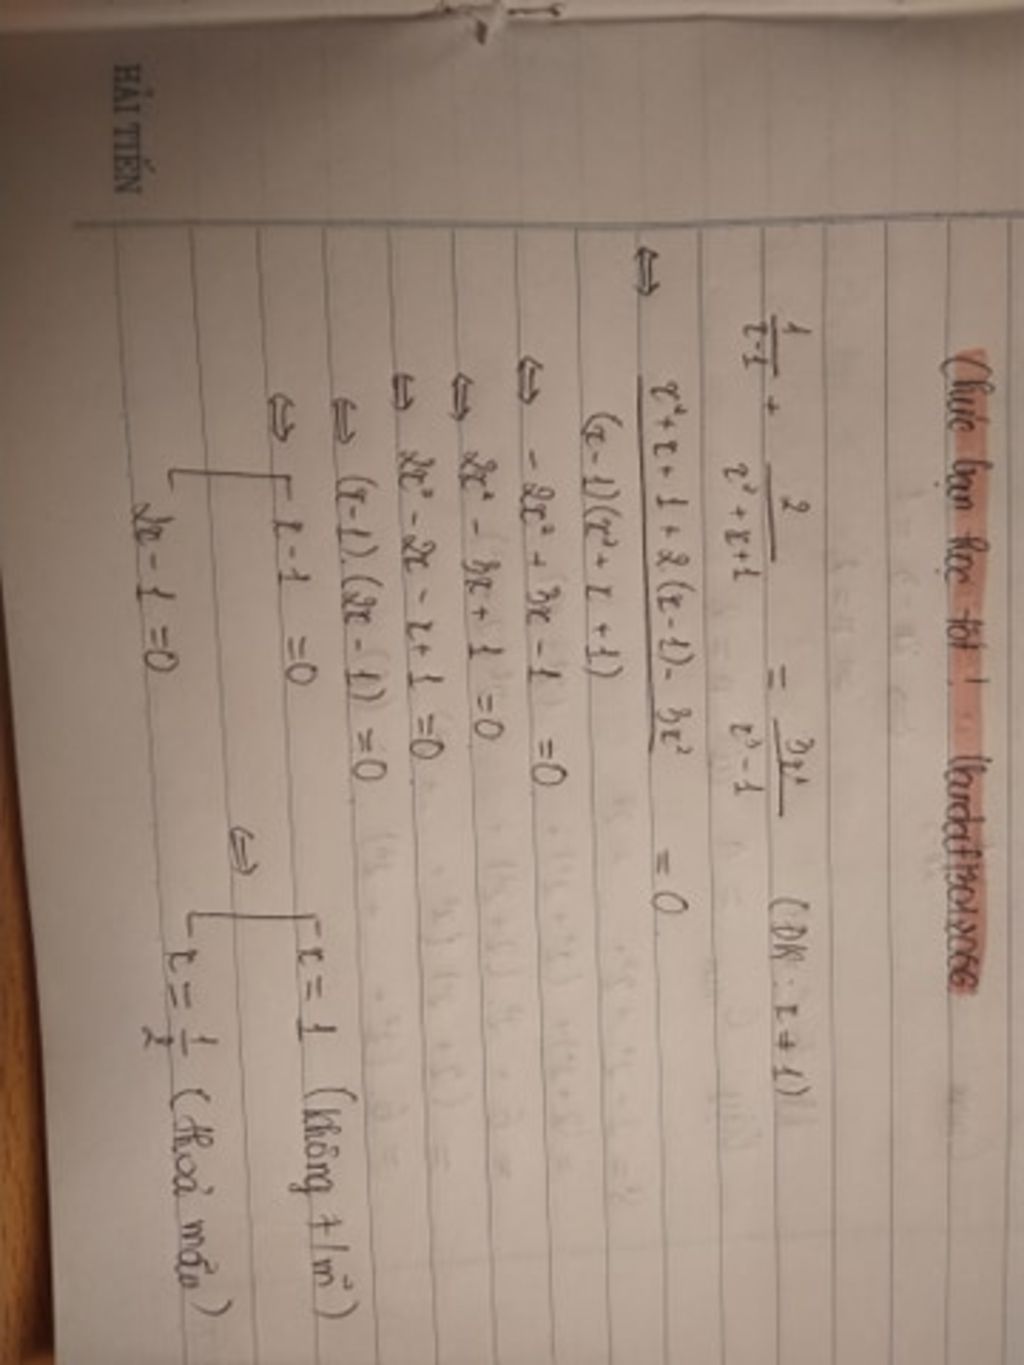 HẢI TIẾN
Chúc bạn học tốt!
1/(x-1) + 2/(x²+x+1) = 3x²/(x³-1) (ĐK: x ≠ 1)
⇔ (x²+x+1+2(x-1)-3x²)/((x-1)(x²+x+1)) = 0
⇔ -2x²+3x-1 = 0
⇔ 2x²-3x+1 = 0
⇔ 2x²-2x-x+1 = 0
⇔ (x-1).(2x-1) = 0
⇔ [ x-1 = 0 ⇔ [ x = 1 (không t/m)
2x-1 = 0 x = 1/2 (thoả mãn)